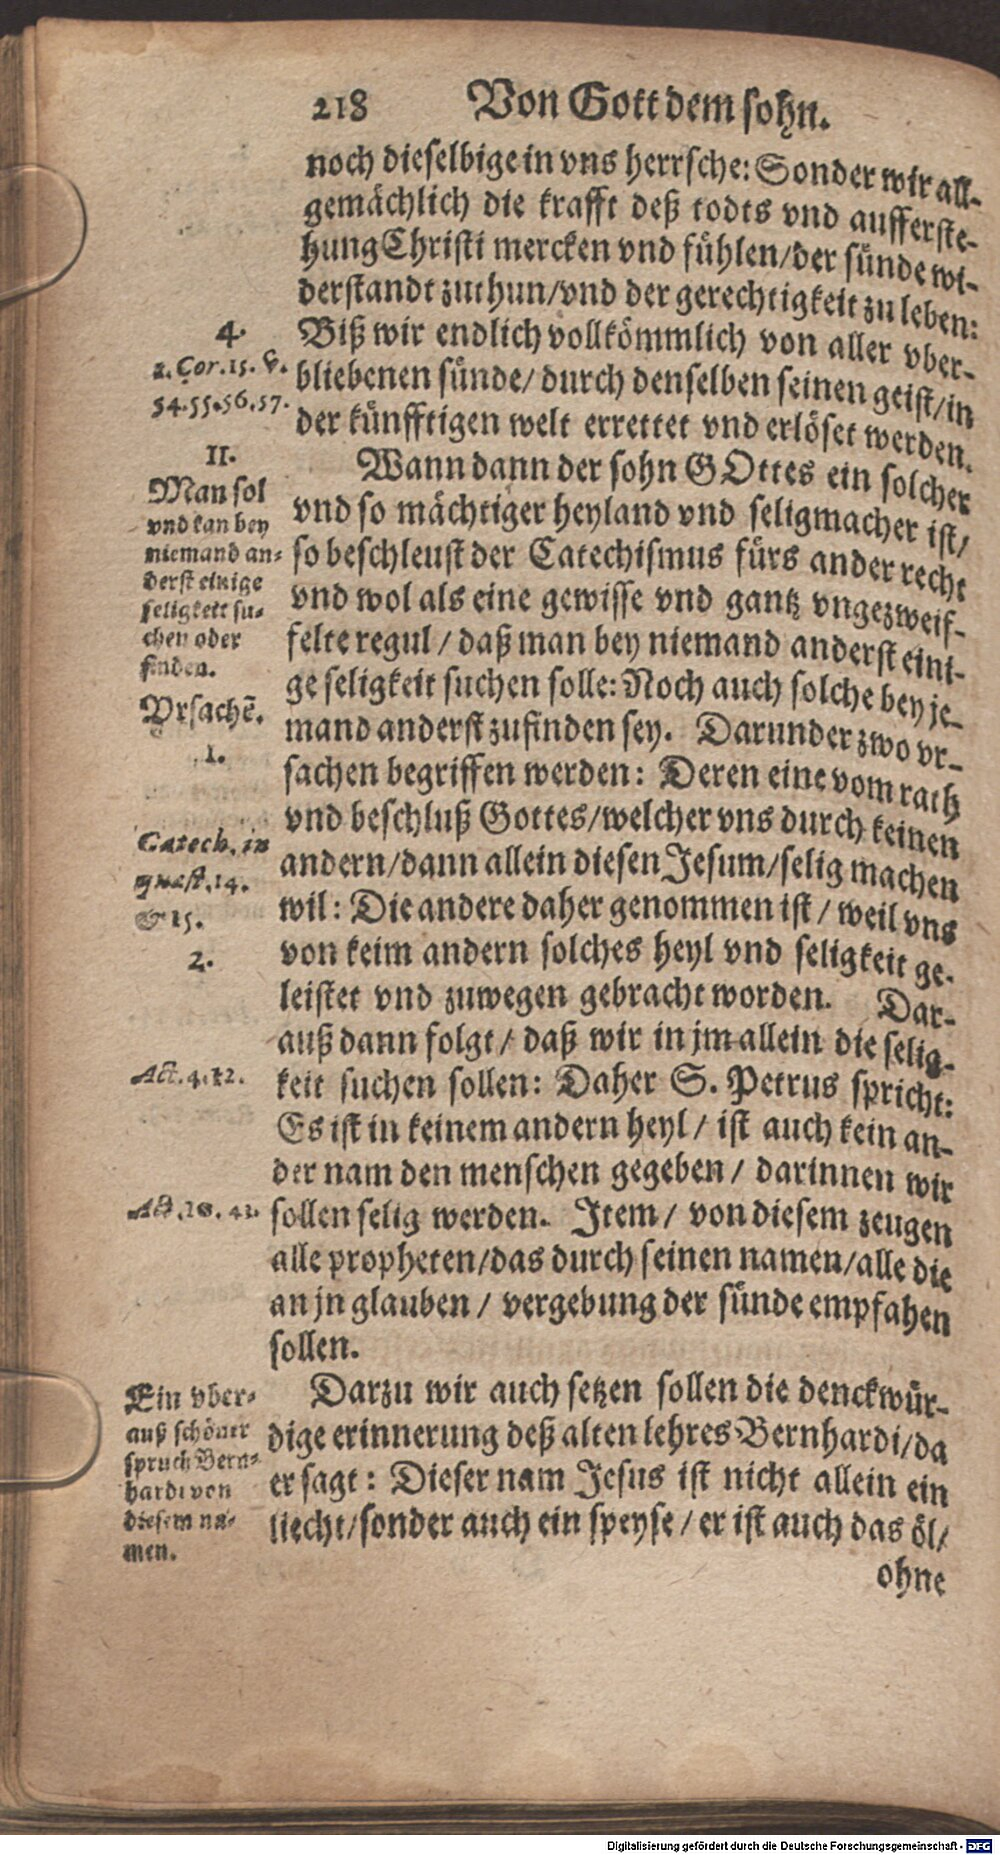 218 Von Gott dem sohn.
noch dieselbige in vns herrsche: Sonder wir all-
gemächlich die krafft deß todts vnd aufferste-
hung Christi mercken vnd fühlen/der sünde wi-
derstandt zuthun/vnd der gerechtigkeit zu leben:
Biß wir endlich vollkömmlich von aller vber-
bliebenen sünde/ durch denselben seinen geist/in
der künfftigen welt errettet vnd erlöset werden.
Wann dann der sohn GOttes ein solcher
vnd so mächtiger heyland vnd seligmacher ist/
so beschleust der Catechismus fürs ander recht
vnd wol als eine gewisse vnd gantz vngezweif-
felte regul / daß man bey niemand anderst eini-
ge seligkeit suchen solle: Noch auch solche bey je-
mand anderst zufinden sey. Darunder zwo vr-
sachen begriffen werden: Deren eine vom rath
vnd beschluß Gottes/welcher vns durch keinen
andern/dann allein diesen Jesum/selig machen
wil: Die andere daher genommen ist / weil vns
von keim andern solches heyl vnd seligkeit ge-
leistet vnd zuwegen gebracht worden. Dar-
auß dann folgt / daß wir in jm allein die selig-
keit suchen sollen: Daher S. Petrus spricht:
Es ist in keinem andern heyl / ist auch kein an-
der nam den menschen gegeben / darinnen wir
sollen selig werden. Item / von diesem zeugen
alle propheten/das durch seinen namen/alle die
an jn glauben / vergebung der sünde empfahen
sollen.
Darzu wir auch setzen sollen die denckwür-
dige erinnerung deß alten lehres Bernhardi/da
er sagt: Dieser nam Jesus ist nicht allein ein
liecht/sonder auch ein speyse / er ist auch das öl/
ohne
4.
1. Cor. 15. v.
54.55.56.57.
II.
Man sol
vnd kan bey
niemand an-
derst einige
seligkeit su-
chen oder
finden.
Vrsachẽ.
1.
Catech. in
quæst. 14.
& 15.
2.
Act. 4.12.
Act. 10. 43.
Ein vber-
auß schöner
spruch Bern-
hardi von
diesem na-
men.
Digitalisierung gefördert durch die Deutsche Forschungsgemeinschaft - DFG